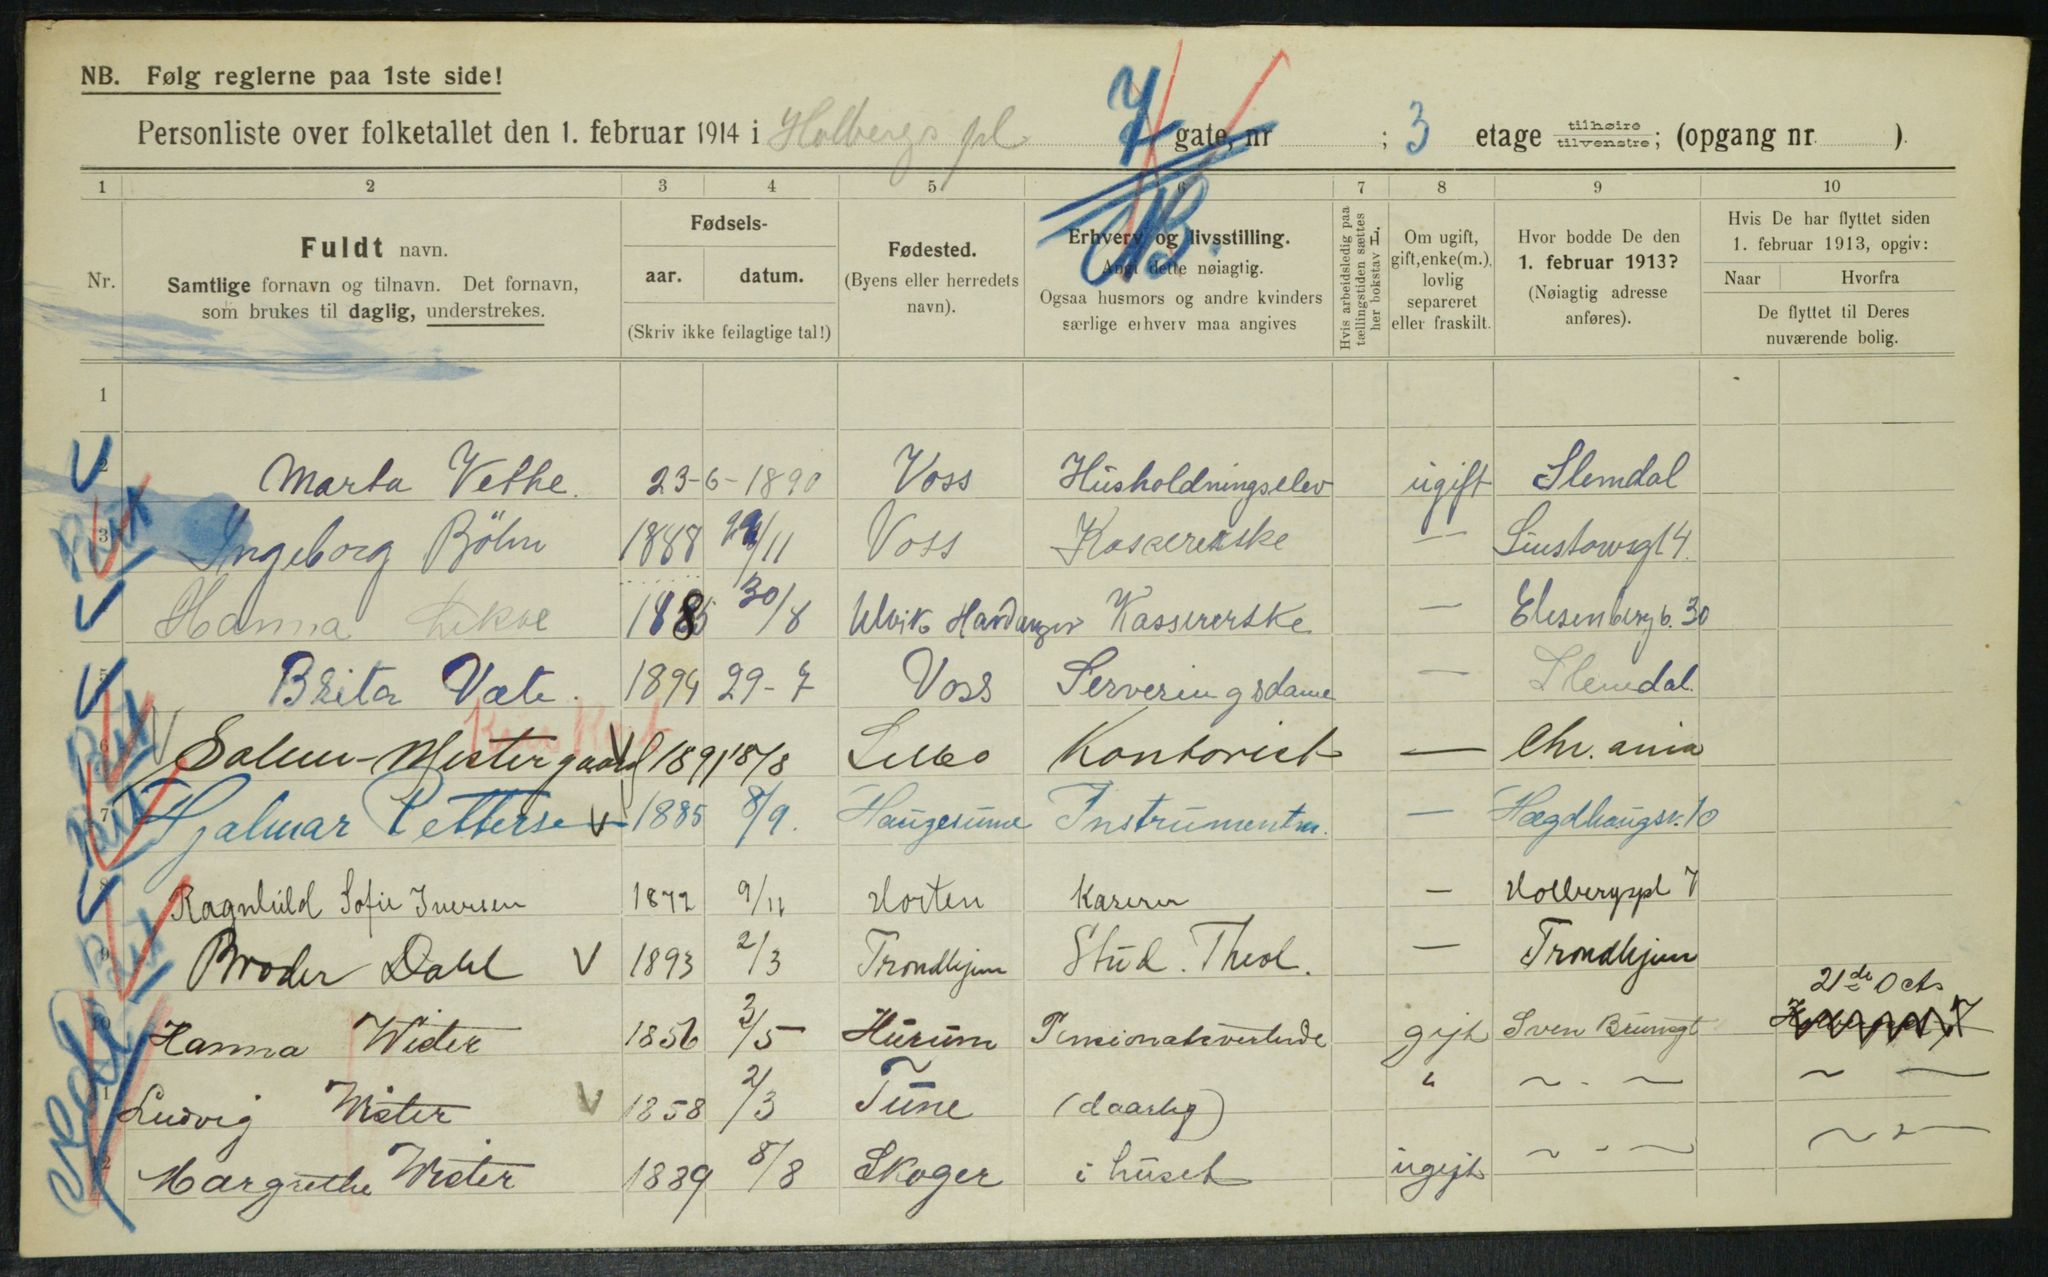 NB. Følg reglerne paa 1ste side!
Personliste over folketallet den 1. februar 1914 i Holbergs pl 7 gate, nr ; 3 etage tilhøire/tilvenstre; (opgang nr ).
NB.
1 2 3 4 5 6 7 8 9 10
Nr.
Fuldt navn.
Samtlige fornavn og tilnavn. Det fornavn,
som brukes til daglig, understrekes.
Fødsels-
aar. datum.
(Skriv ikke feilagtige tal!)
Fødested.
(Byens eller herredets
navn).
Erhverv og livsstilling.
Angi dette nøiagtig.
Ogsaa husmors og andre kvinders
særlige erhverv maa angives
Hvis arbeidsledig paa
tællingstiden sættes
her bokstav L.
Om ugift,
gift, enke(m.),
lovlig
separeret
eller fraskilt.
Hvor bodde De den
1. februar 1913?
(Nøiagtig adresse
anføres).
Hvis De har flyttet siden
1. februar 1913, opgiv:
Naar Hvorfra
De flyttet til Deres
nuværende bolig.
1
2 Marta Vethe. 23-6-1890 Voss Husholdningselev ugift Slemdal
3 Ingeborg Böhn 1888 /11 Voss Kassererske — Linstowsgt 4.
Hanna 1885 30/8 Ulvik Hardanger Kassererske — Elesenberg v. 30
5 Brita Væte. 1894 29-7 Voss Serveringsdame — Slemdal.
6 1891 18/8 Kontorist — Chr.ania
7 Hjalmar Pettersen V 1885 8/9. Haugesund Instrumentm. — Hægdhaugsv. 10
8 Ragnhild Sofie Iversen 1872 9/11 Horten Kaserer — Holbergspl 7
9 Broder Dahl V 1893 2/3 Trondhjem Stud. Theol. — Trondhjem
21de Octo
10 Hanna Wister 1856 3/5 Hurum Pensionatsvertinde gift Sven Brunsgt
11 Ludvig Wister V 1858 2/3 Tune (daarlig) " ~ - ~ ~ —
12 Margrethe Wister 1889 8/8 Skoger i huset ugift ~ - ~ ~ —